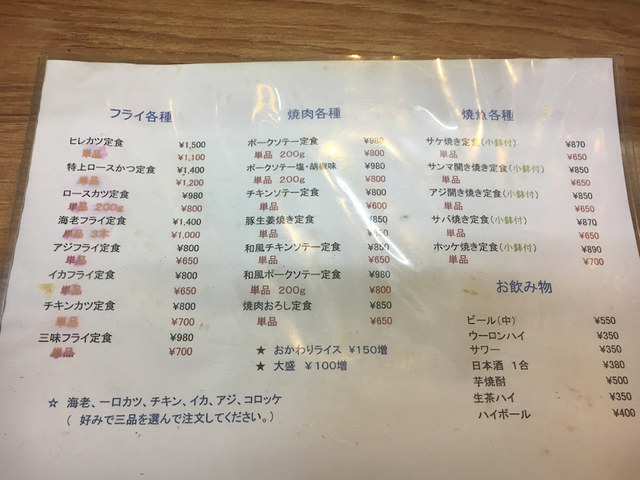 フライ各種
ヒレカツ定食 ¥1,500
単品 ¥1,100
特上ロースかつ定食 ¥1,400
単品 ¥1,200
ロースカツ定食 ¥980
単品 200g ¥800
海老フライ定食 ¥1,400
単品 3本 ¥1,000
アジフライ定食 ¥800
単品 ¥650
イカフライ定食 ¥800
単品 ¥650
チキンカツ定食 ¥800
単品 ¥700
三味フライ定食 ¥980
単品 ¥700
☆ 海老、一口カツ、チキン、イカ、アジ、コロッケ
( 好みで三品を選んで注文してください。)
焼肉各種
ポークソテー定食 ¥980
単品 200g ¥800
ポークソテー塩・胡椒味 ¥980
単品 200g ¥800
チキンソテー定食 ¥800
単品 ¥600
豚生姜焼き定食 ¥850
単品 ¥650
和風チキンソテー定食 ¥850
単品 ¥650
和風ポークソテー定食 ¥980
単品 200g ¥800
焼肉おろし定食 ¥850
単品 ¥650
★ おかわりライス ¥150増
★ 大盛 ¥100増
焼魚各種
サケ焼き定食(小鉢付) ¥870
単品 ¥650
サンマ開き焼き定食(小鉢付) ¥850
単品 ¥650
アジ開き焼き定食(小鉢付) ¥850
単品 ¥650
サバ焼き定食(小鉢付) ¥870
単品 ¥650
ホッケ焼き定食(小鉢付) ¥890
単品 ¥700
お飲み物
ビール(中) ¥550
ウーロンハイ ¥350
サワー ¥350
日本酒 1合 ¥380
芋焼酎 ¥500
生茶ハイ ¥350
ハイボール ¥400